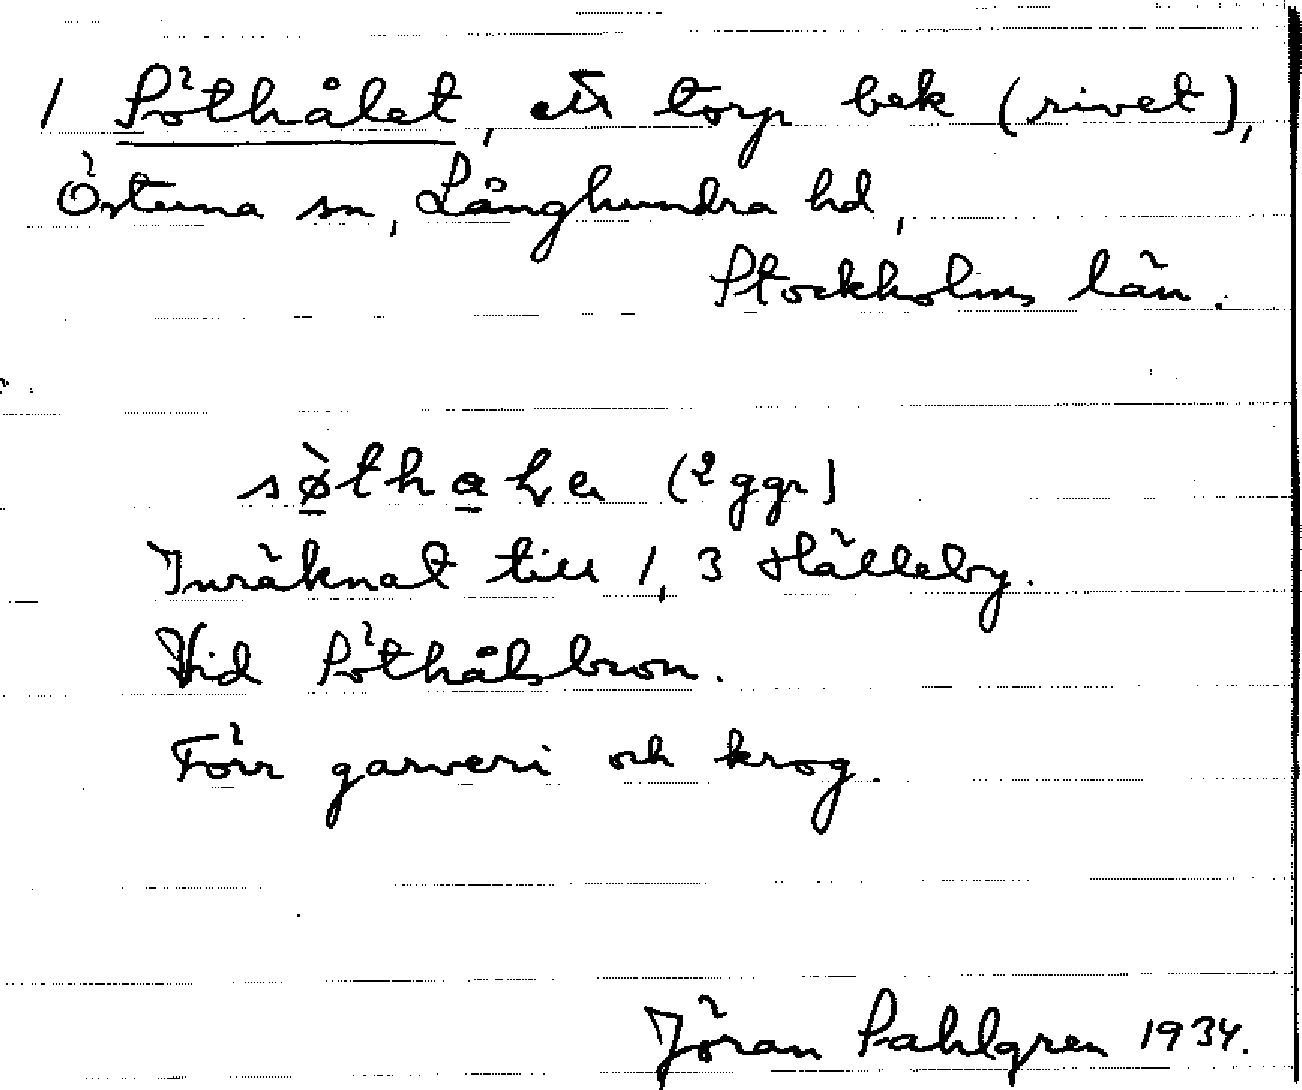 1 Söthålet, ett torp bek (rivet),
Östuna sn, Långhundra hd,
Stockholms län.
sø̀thaḷen (2 ggr)
Inräknat till 1, 3 Hälleby.
Vid Söthålsbron.
Förr garveri och krog.
Jöran Sahlgren 1934.